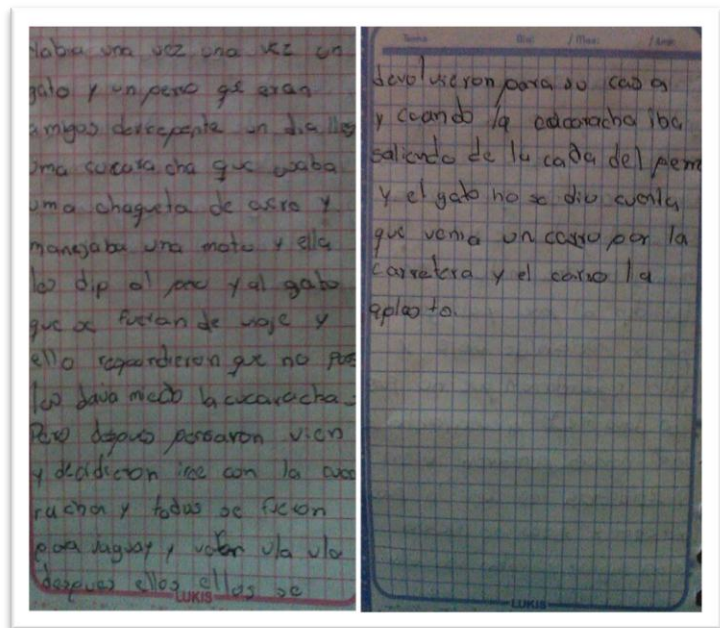 Habia una vez una vez un
gato y un perro qe eran
amigos derrepente un dia llego
una cucaracha que usaba
uma chaqueta de cuero y
manejaba una moto y ella
les dijo al perro y al gato
que se fueran de viaje y
ello respondieron que no pues
les dava miedo la cucaracha.
Pero despues pensaron vien
y decidieron irse con la cuca
racha y todos se fueron
para y ula ula
despues ellos ellos se
LUKIS
Tema: Día: / Mes: / Año:
devolvieron para su casa
y cuando la cucaracha iba
saliendo de la casa del perro
y el gato no se dio cuenta
que venia un carro por la
carretera y el carro la
aplasto.
LUKIS